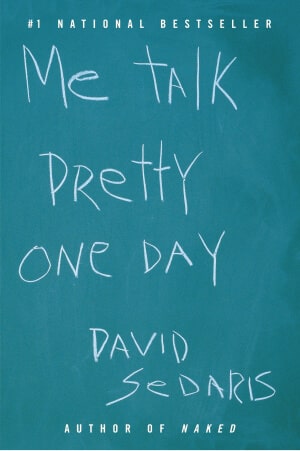 #1 NATIONAL BESTSELLER
Me TALK
PReTTY
ONe DAY
DAVID
SeDARIS
AUTHOR OF NAKED